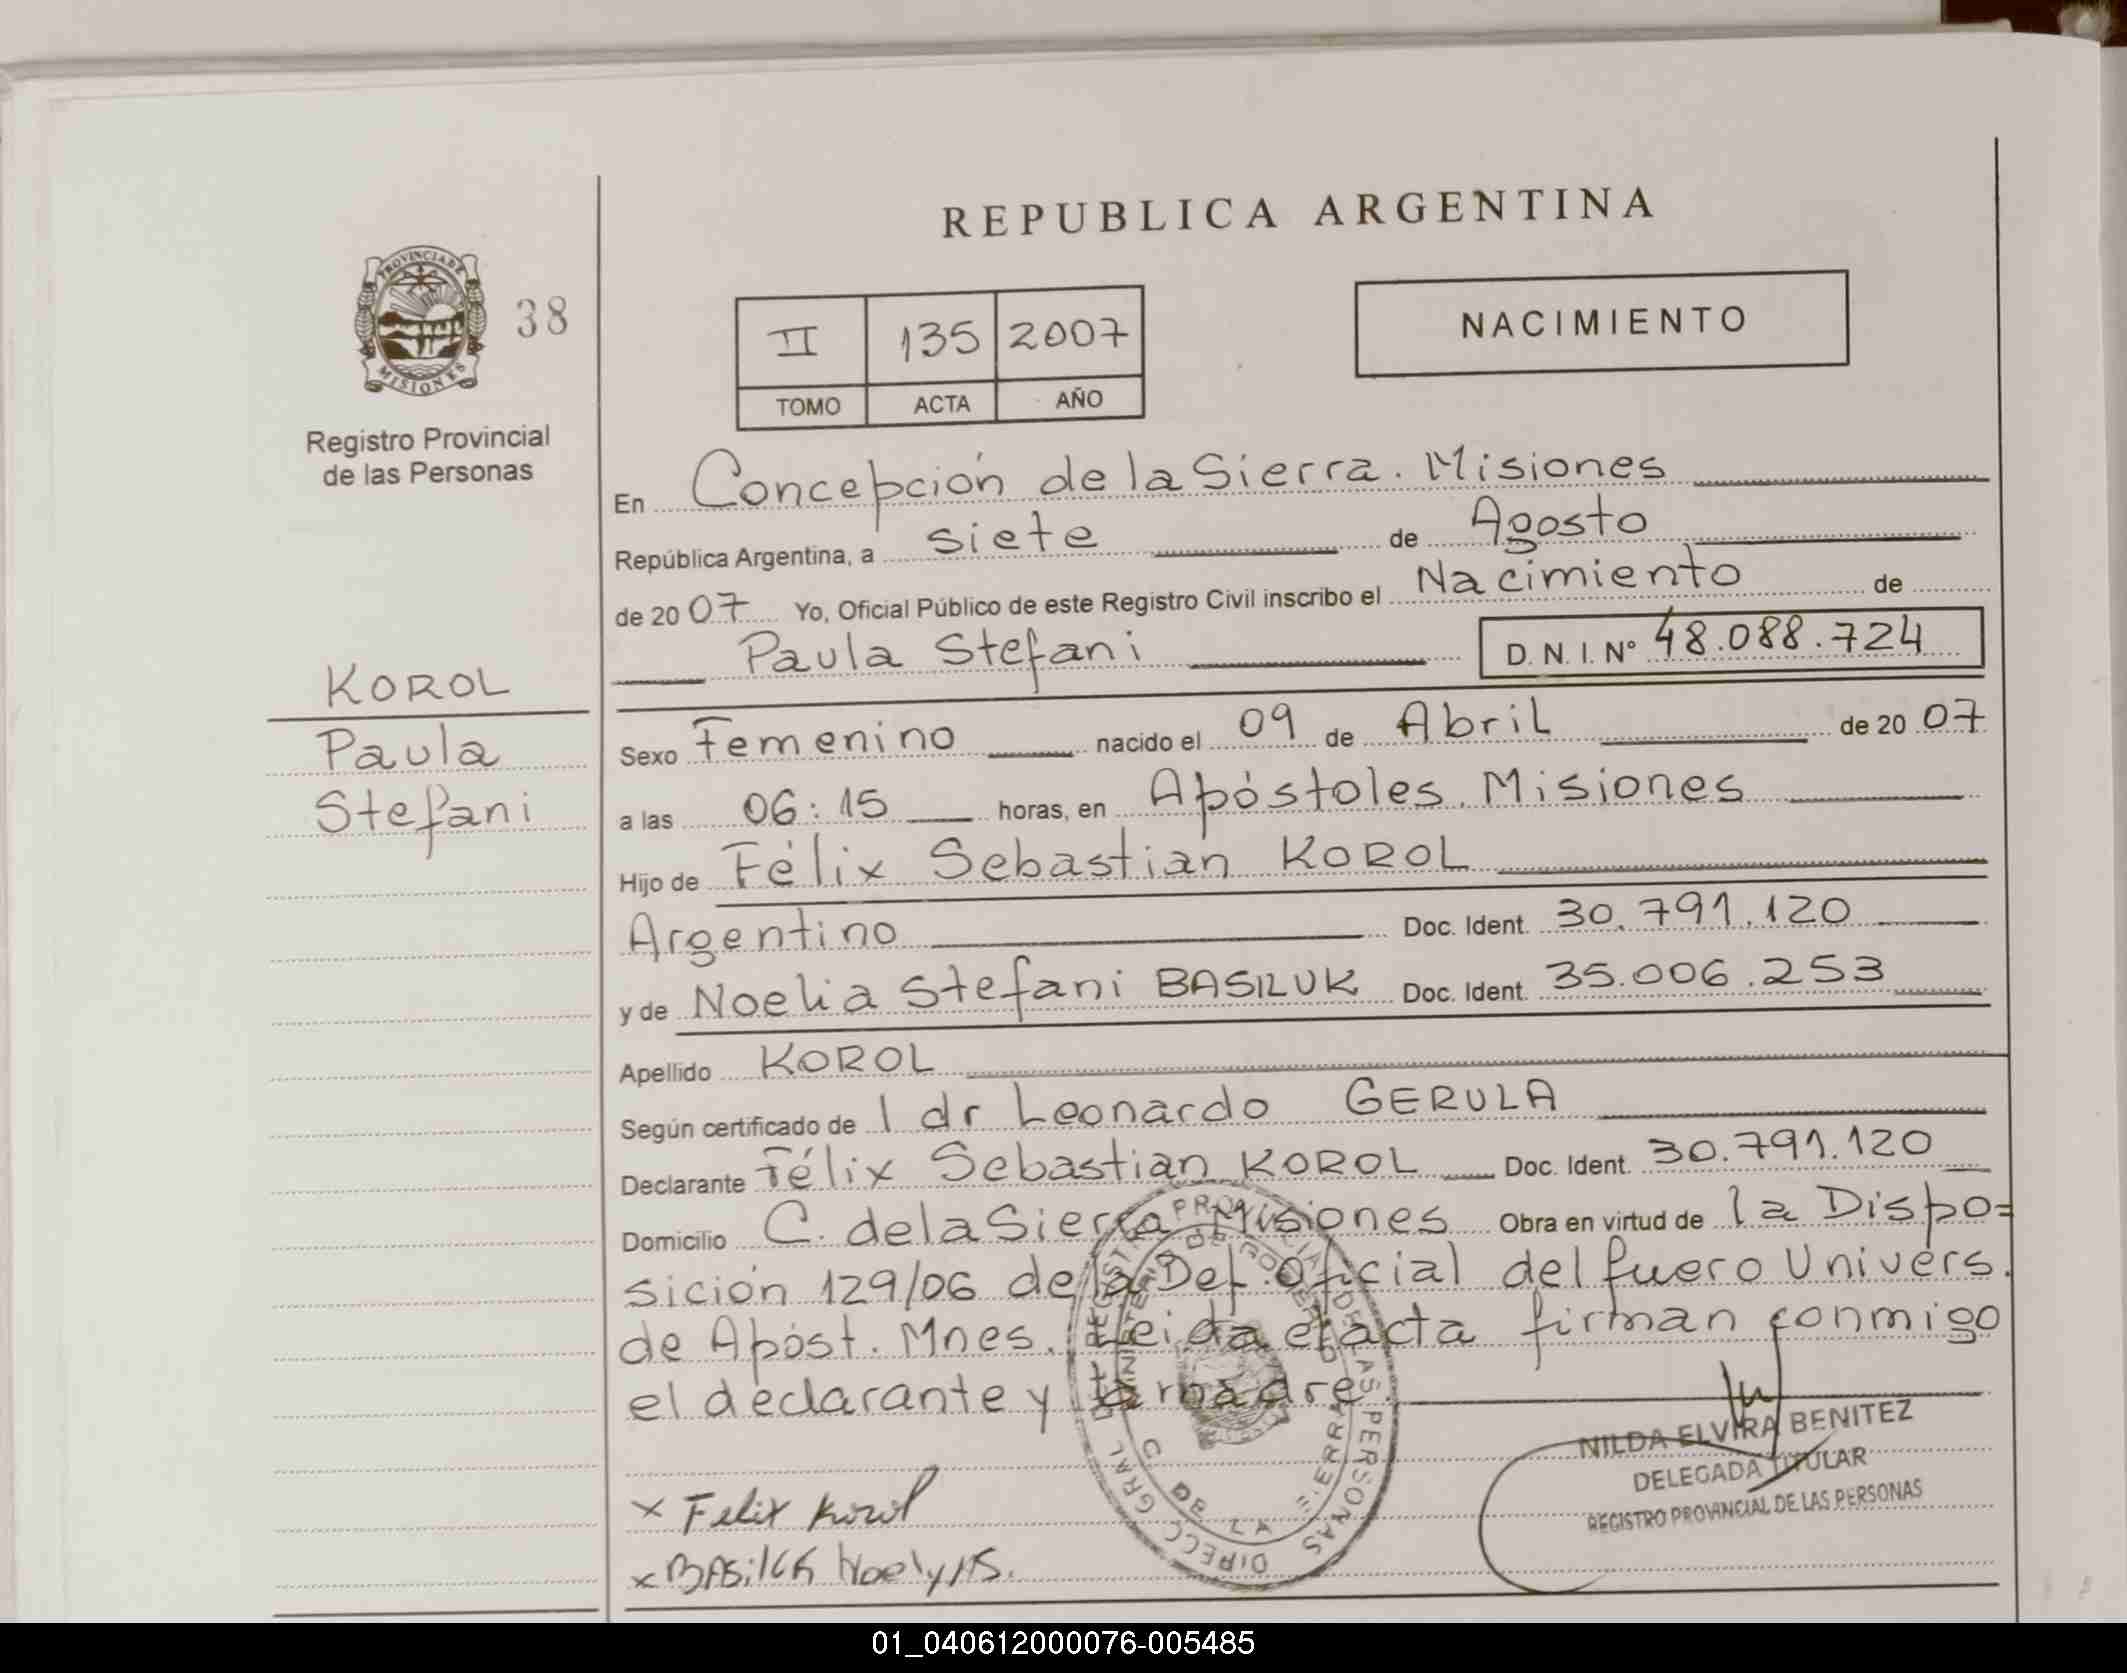 REPUBLICA ARGENTINA
PROVINCIA DE
MISIONES
38
Registro Provincial
de las Personas
II 135 2007
TOMO ACTA AÑO
NACIMIENTO
En Concepción de la Sierra. Misiones
República Argentina, a siete de Agosto
de 20 07 Yo, Oficial Público de este Registro Civil inscribo el Nacimiento de
Paula Stefani D.N.I. Nº 48.088.724
KOROL
Paula
Stefani
Sexo Femenino nacido el 09 de Abril de 20 07
a las 06:15 horas, en Apóstoles. Misiones
Hijo de Félix Sebastian KOROL
Argentino Doc. Ident. 30.791.120
y de Noelia Stefani BASILUK Doc. Ident. 35.006.253
Apellido KOROL
Según certificado de l dr Leonardo GERULA
Declarante Félix Sebastian KOROL Doc. Ident. 30.791.120
Domicilio C. de la Sierra Misiones Obra en virtud de la Dispo=
sición 129/06 de la Def. Oficial del fuero Univers.
de Apóst. Mnes. Leida el acta firman conmigo
el declarante y la madre.
NILDA ELVIRA BENITEZ
DELEGADA TITULAR
REGISTRO PROVINCIAL DE LAS PERSONAS
x Felix Korol
01_040612000076-005485